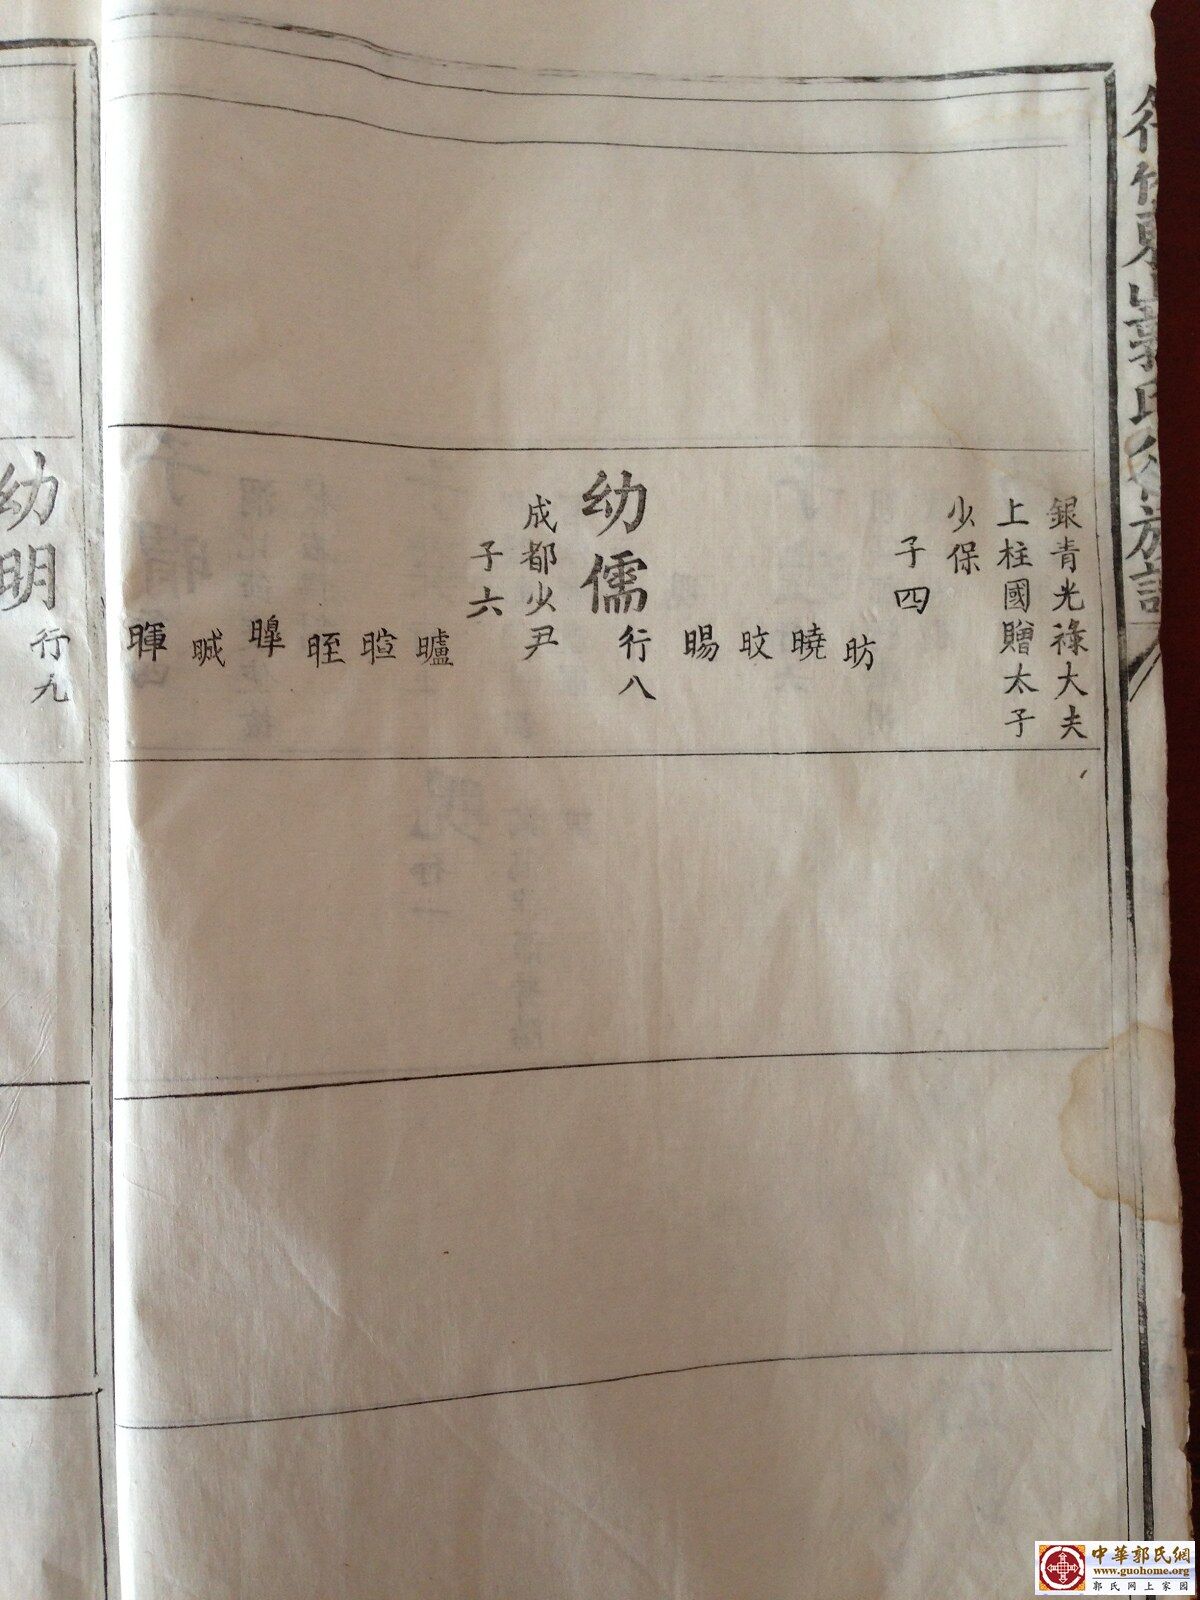 銀青光祿大夫
上柱國贈太子
少保
子四
昉
曉
旼
暘
幼儒行八
成都少尹
子六
曥
暄
晊
暭
晠
暉
幼明行九
中華郭氏網
www.guohome.org
郭氏网上家园